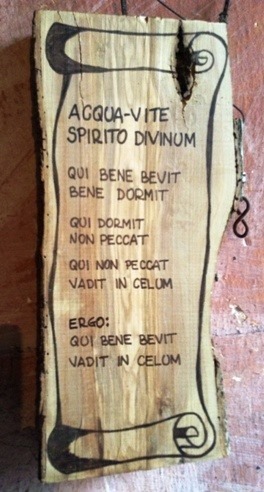 ACQUA-VITE
SPIRITO DIVINUM
QUI BENE BEVIT
BENE DORMIT
QUI DORMIT
NON PECCAT
QUI NON PECCAT
VADIT IN CELUM
ERGO:
QUI BENE BEVIT
VADIT IN CELUM